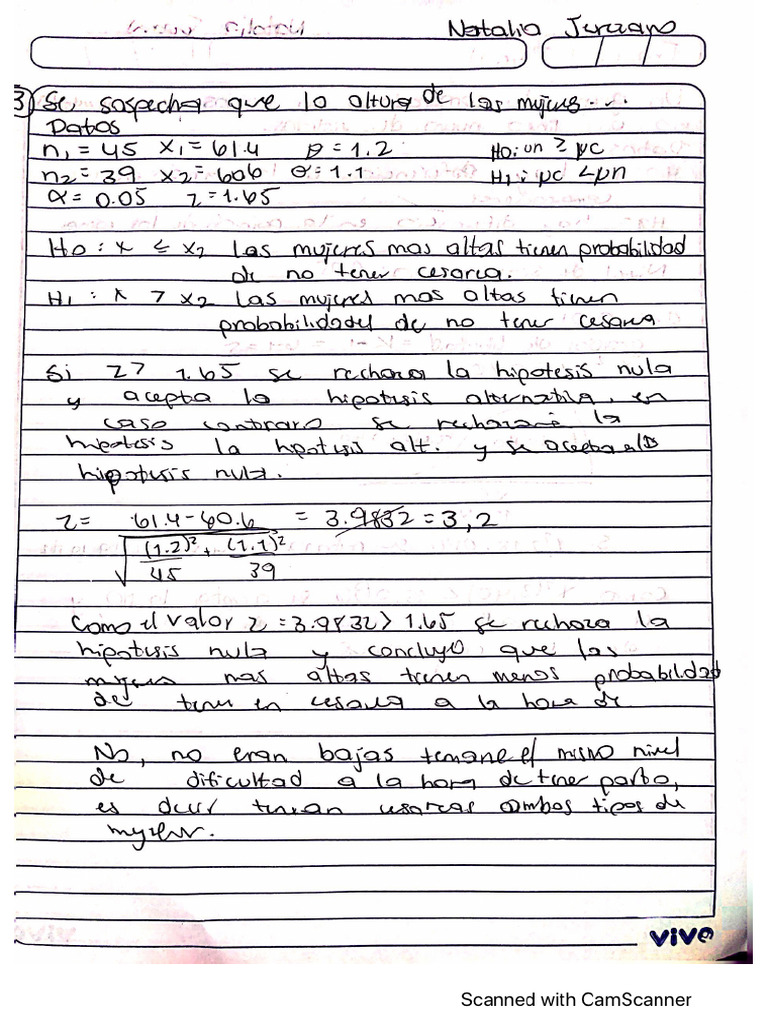 Natalia
3) Se sospecha que la altura de las mujeres...
Datos
n₁ = 45 X₁ = 61.4 θ = 1.2 Ho: un ≥ μc
n₂ = 39 X₂ = 606 θ = 1.1 H₁: μc < μn
α = 0.05 z = 1.65
Ho: x ≤ x₂ Las mujeres mas altas tienen probabilidad
de no tener cesarea.
H₁: x > x₂ Las mujeres mas altas tienen
probabilidades de no tener cesarea
Si Z > 1.65 se rechaza la hipotesis nula
y acepta la hipotesis alternativa, en
caso contrario se rechazaré la
hipotesis la hipotesis alt. y se acepta
hipotesis nula.
z = 61.4 - 60.6 = 3.9832 = 3,2
√ (1.2)² + (1.1)²
45 39
Como el valor z = 3.9832 > 1.65 se rechaza la
hipotesis nula y concluyo que las
mujeres mas altas tienen menos probabilidad
de tener en cesarea a la hora de
No, no eran bajas el mismo nivel
de dificultad a la hora de tener parto,
es decir cesareas ambos tipos de
mujer.
vivo
Scanned with CamScanner